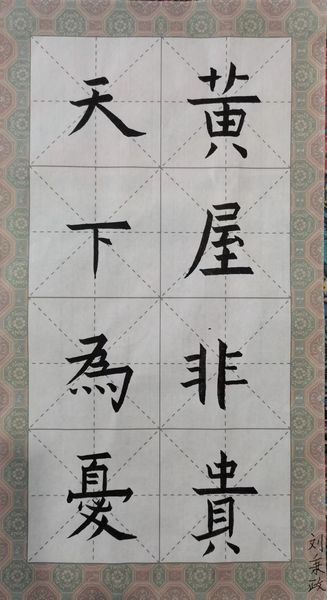 黄屋非貴
天下為憂
刘秉政